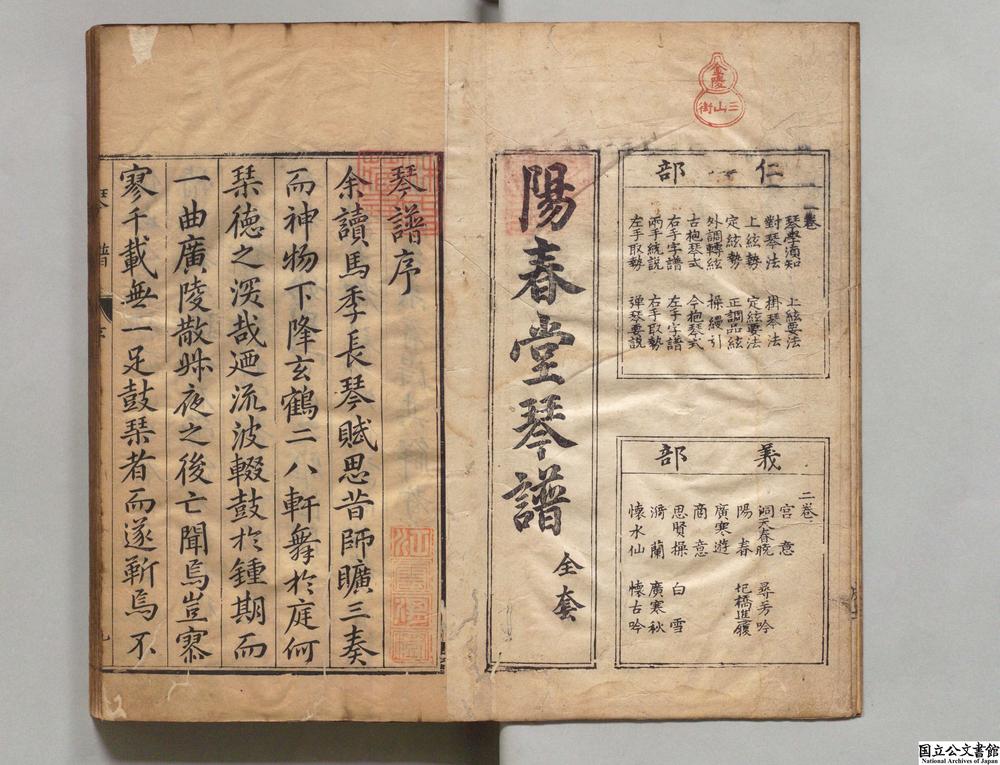 金陵
三山街
仁部
一卷
琴學須知 上絃要法
對琴法 掛琴法
上絃勢 定絃要法
定絃勢 正調品絃
外調轉絃 操縵引
古抱琴式 今抱琴式
右手字譜 左手字譜
兩手統說 右手取勢
左手取勢 弹琴要說
義部
二卷
宮意
洞天春暁 尋芳吟
陽春 圯橋進履
廣寒遊
商意
思賢操 白雪
漪蘭 廣寒秋
懷水仙 懷古吟
陽春堂琴譜
全套
琴譜序
余讀馬季長琴賦思昔師曠三奏
而神物下降玄鶴二八軒舞於庭何
琹德之深哉廼流波輟鼓於鍾期而
一曲廣陵散甡夜之後亡聞焉豈寥
寥千載無一足鼓琹者而遂靳焉不
琴譜
序
国立公文書館
National Archives of Japan